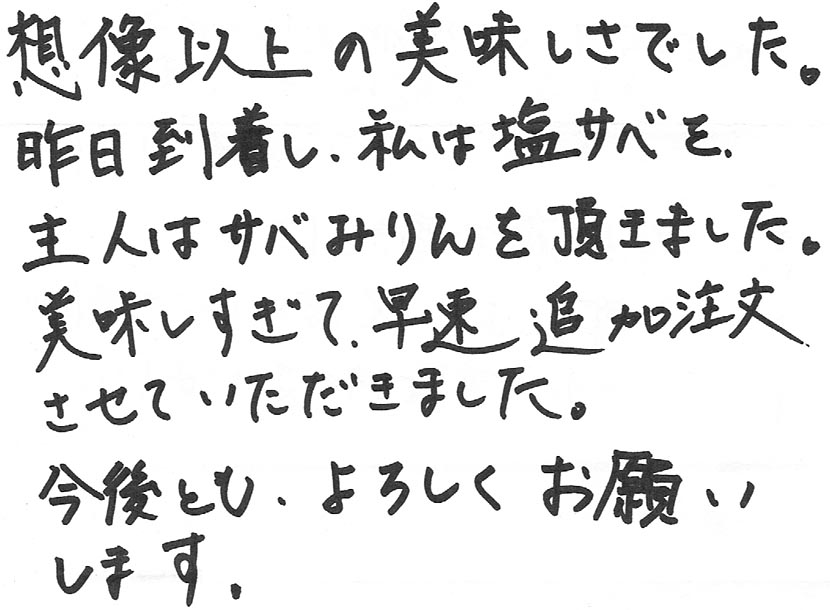 想像以上の美味しさでした。
昨日到着し、私は塩サバを、
主人はサバみりんを頂きました。
美味しすぎて、早速追加注文
させていただきました。
今後とも、よろしくお願い
します。